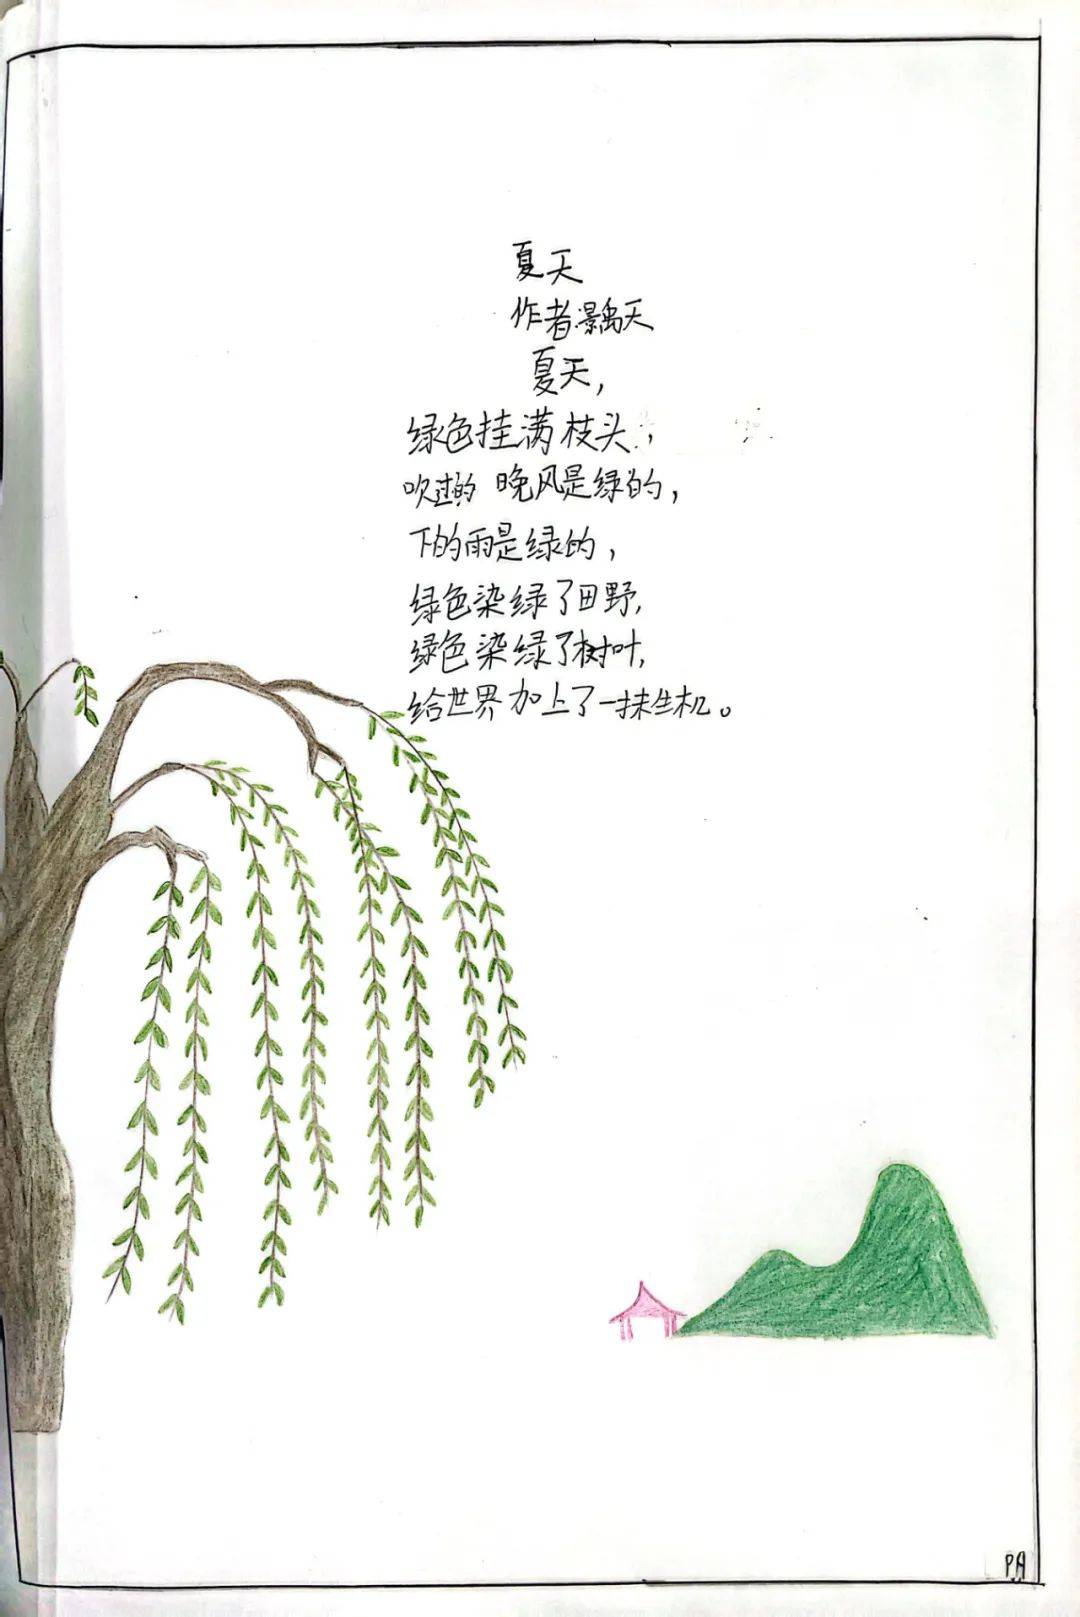 夏天
作者:景禹天
夏天，
绿色挂满枝头，
吹过的晚风是绿的，
下的雨是绿的，
绿色染绿了田野，
绿色染绿了树叶，
给世界加上了一抹生机。
PA